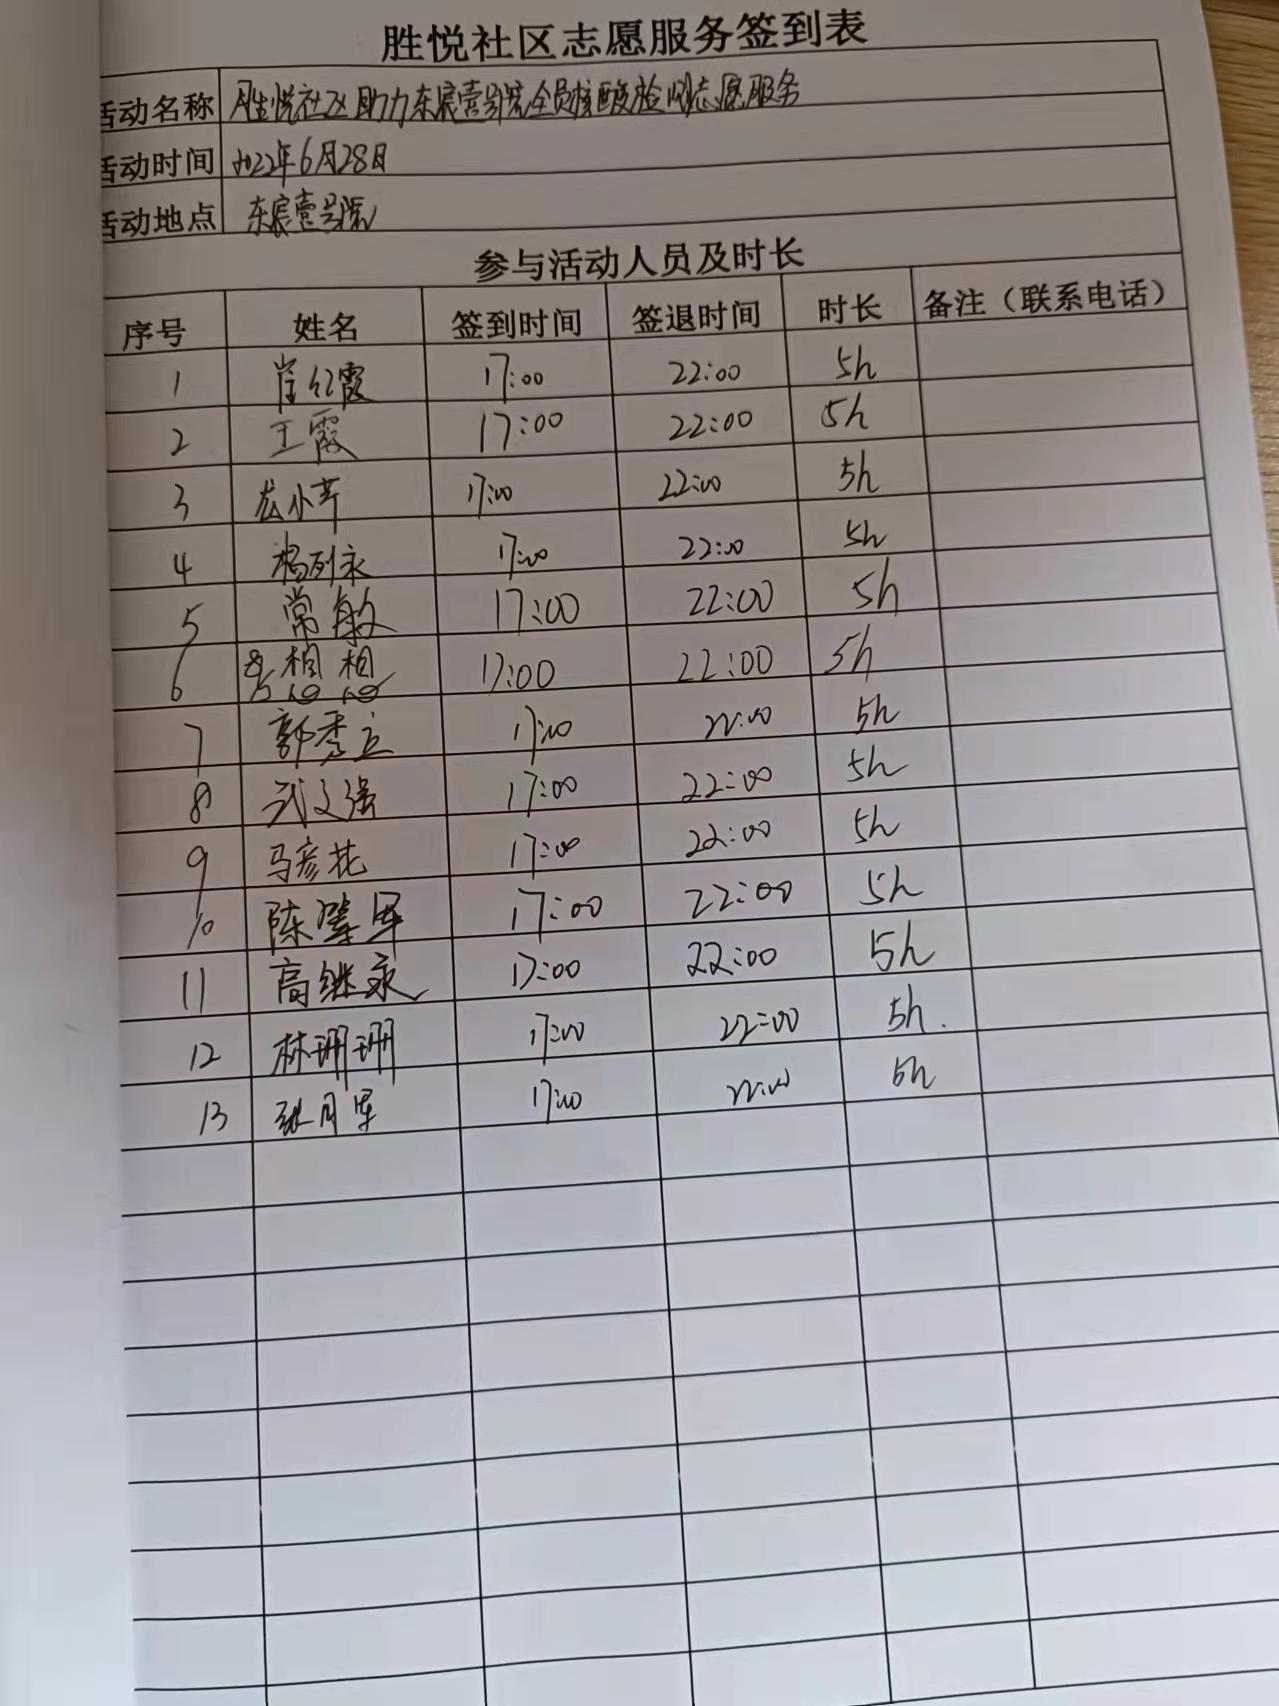 胜悦社区志愿服务签到表
活动名称 胜悦社区助力东宸壹号院全员核酸检测志愿服务
活动时间 2022年6月28日
活动地点 东宸壹号院
参与活动人员及时长
序号 姓名 签到时间 签退时间 时长 备注（联系电话）
1 肖红霞 17:00 22:00 5h
2 王霞 17:00 22:00 5h
3 17:00 22:00 5h
4 杨列永 17:00 22:00 5h
5 常敏 17:00 22:00 5h
6 17:00 22:00 5h
7 郭秀立 17:00 22:00 5h
8 武文强 17:00 22:00 5h
9 马彦花 17:00 22:00 5h
10 陈 军 17:00 22:00 5h
11 高继永 17:00 22:00 5h
12 林珊珊 17:00 22:00 5h.
13 张月军 17:00 22:00 5h